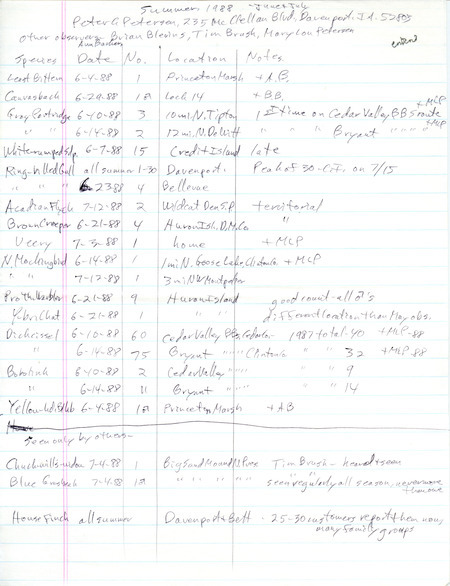 Summer 1988 June & July
Peter C Petersen, 235 McClellan Blvd, Davenport, IA. 52803
other observers Brian Blevins, Tim Brush, Mary Lou Petersen
Ann Barker
Species Date No. Location Notes
Least Bittern 6-4-88 1 Princeton Marsh + A.B.
Canvasback 6-29-88 1♂ Lock 14 + B.B.
Gray Partridge 6-10-88 3 10 mi. N. Tipton 1st time on Cedar Valley BBS route + MLP
" " 6-14-88 2 12 mi. N. DeWitt " " " Bryant " " + MLP
White-rumped Sdp. 6-7-88 15 Credit Island late
Ring-billed Gull all summer 1-30 Davenport Peak of 30 - C.I. on 7/15
" " " 6-23-88 4 Bellevue
Acadian Flyc 7-12-88 2 Wildcat Den S.P. territorial
Brown Creeper 6-21-88 4 Huron Isl. D.M. Co "
Veery 7-23-88 1 home + MLP
N. Mockingbird 6-14-88 1 1 mi N. Goose Lake, Clinton Co + MLP
" " 7-12-88 1 3 mi NW Montpelier
Proth. Warbler 6-21-88 9 Huron Island good count - all ♂'s
Y-br. Chat 6-21-88 1 " " different location than May obs.
Dickcissel 6-10-88 60 Cedar Valley BBS, Cedar Co - 1987 total - 40 + MLP - 88
" 6-14-88 75 Bryant " " " Clinton Co " " 32 + MLP 88
Bobolink 6-10-88 2 Cedar Valley " " " " 9
" 6-14-88 11 Bryant " " " " 14
Yellow-hd. Blkb 6-4-88 1♂ Princeton Marsh + AB
Seen only by others -
Chuck-wills-widow 7-4-88 1 Big Sand Mound N. Pres. Tim Brush - heard & seen
Blue Grosbeak 7-4-88 1♂ " " " " " seen regularly all season, never more
than one
House Finch all summer Davenport & Bett - 25-30 customers report them now,
many family groups